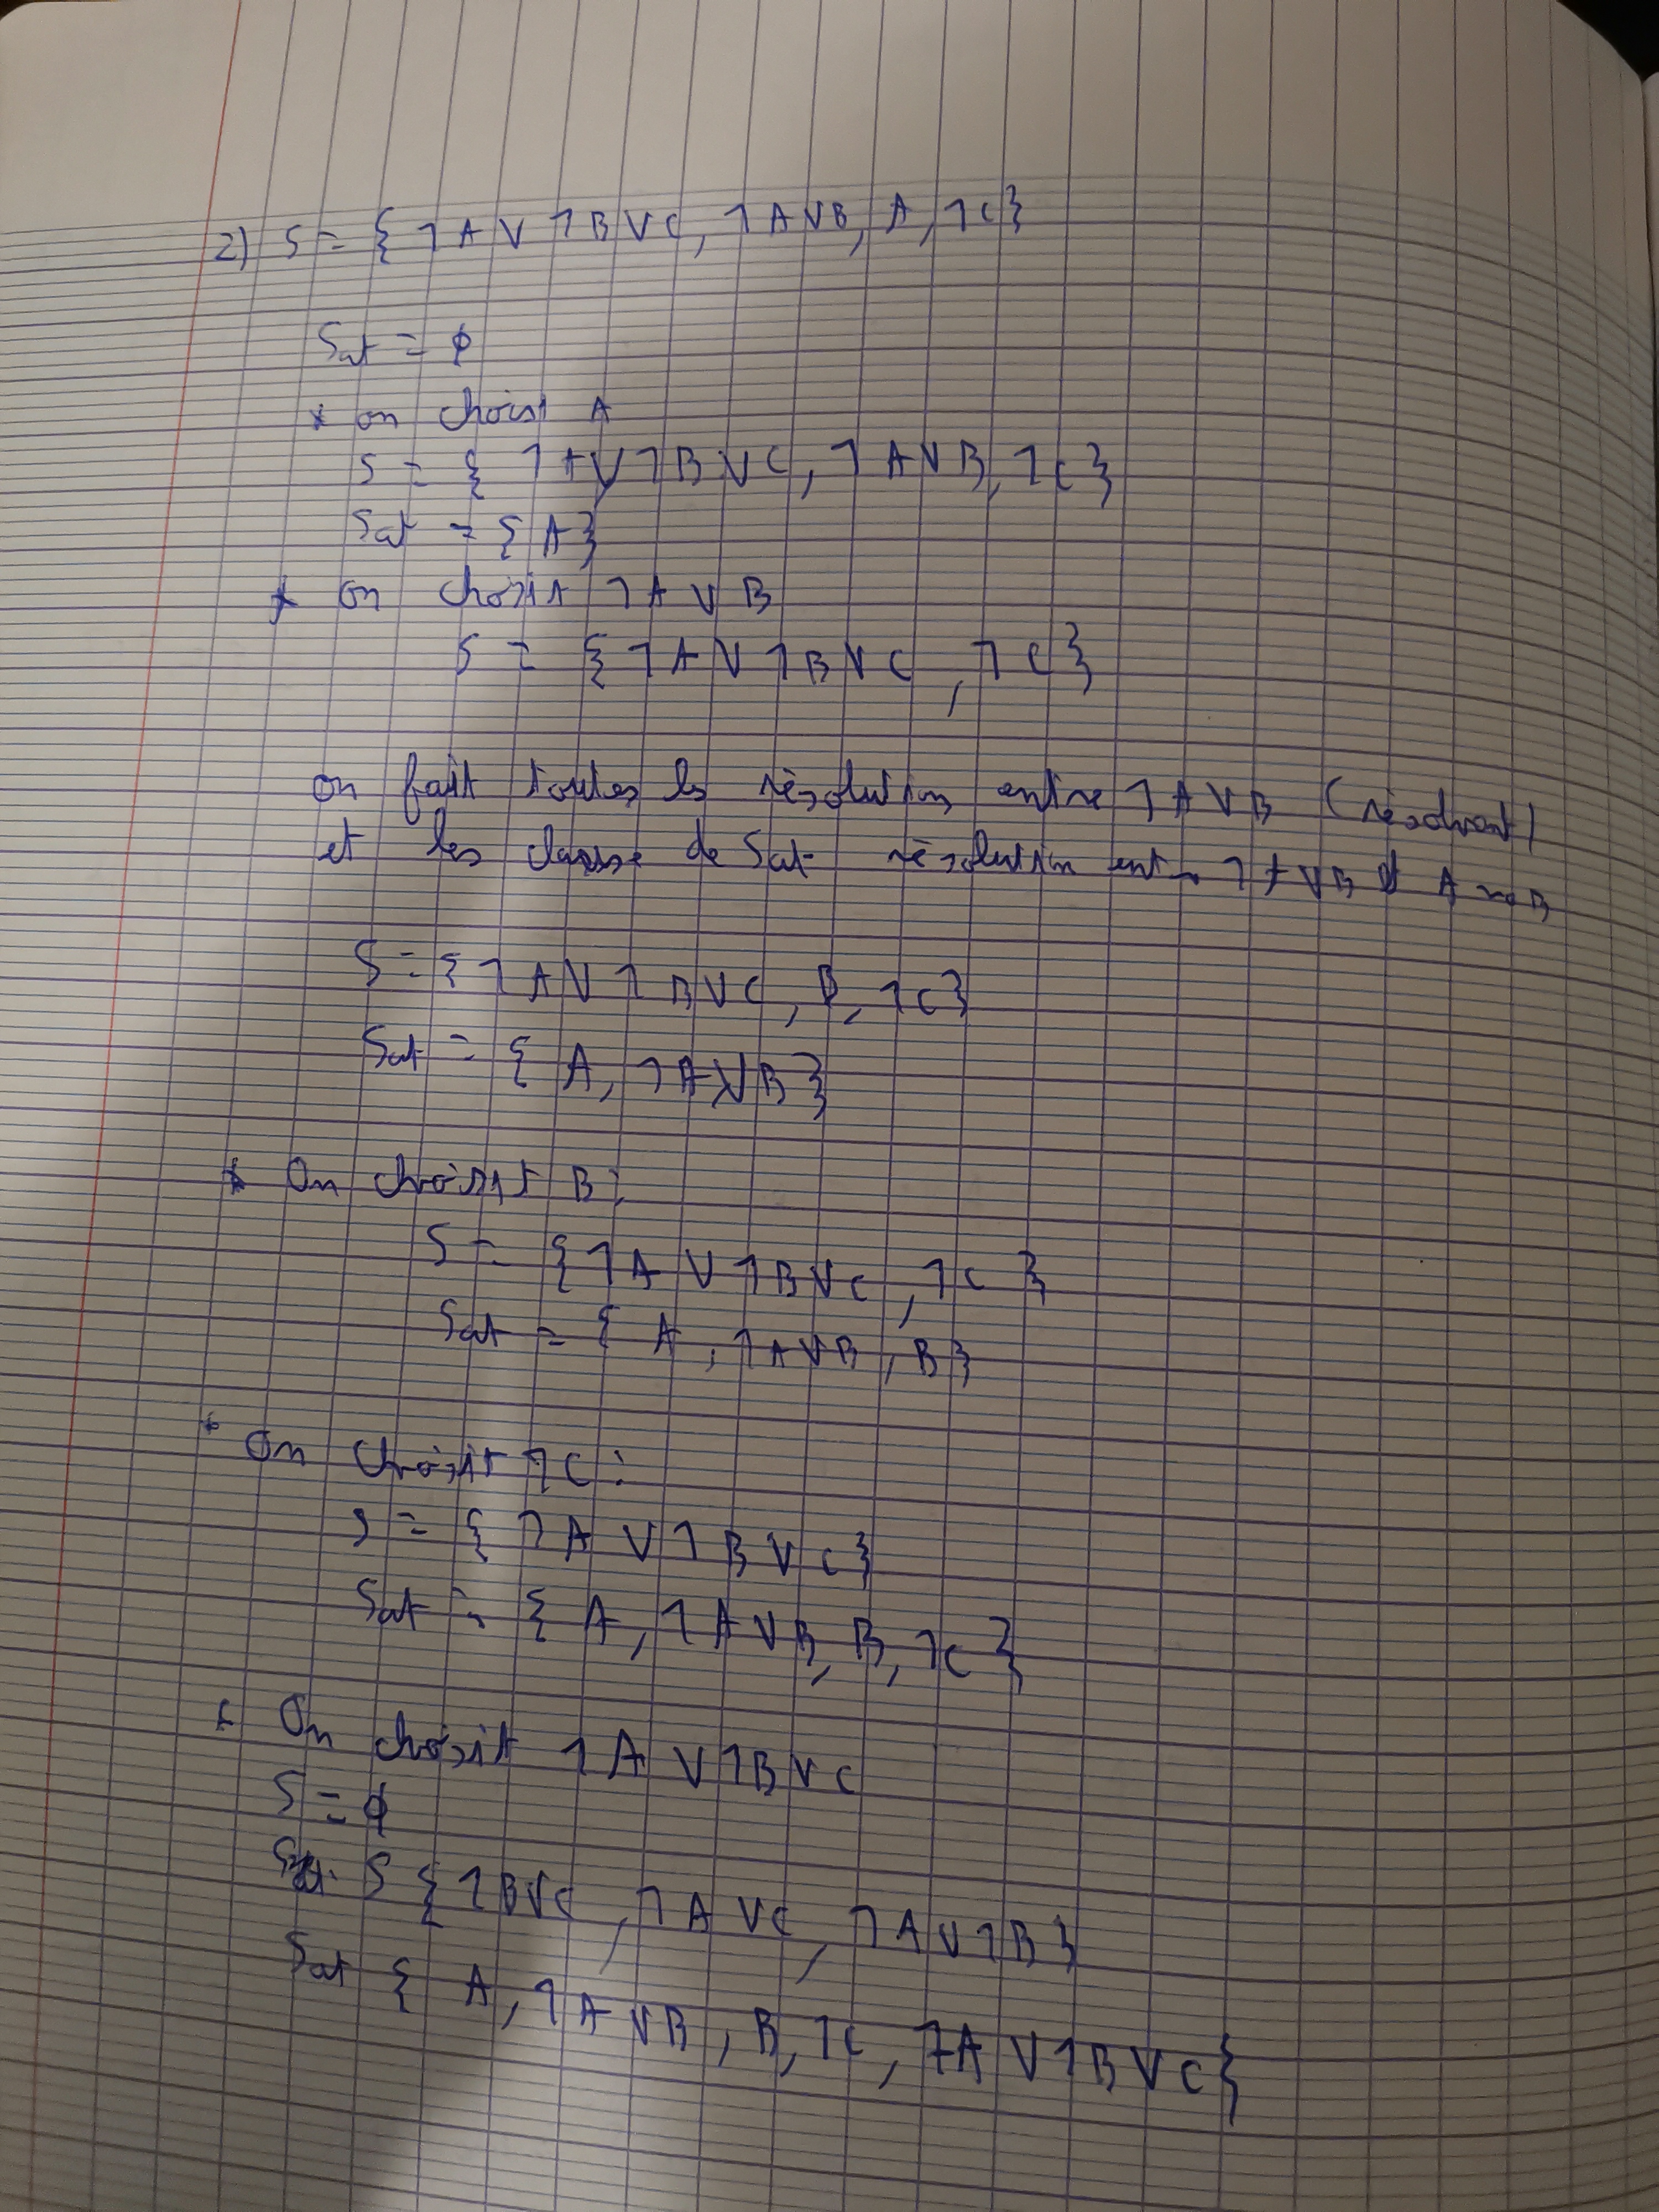 2) S = { ⅂ A V ⅂ B V C, ⅂ A V B, A, ⅂ C }
Sat = ϕ
* on choisit A
S = { ⅂ A V ⅂ B V C, ⅂ A V B, ⅂ C }
Sat = { A }
* on choisit ⅂ A V B
S = { ⅂ A V ⅂ B V C, ⅂ C }
on fait toutes les résolution entre ⅂ A V B (résolvent)
et les classe de Sat résolution entre ⅂ A V B et A ⇝ B
S = { ⅂ A V ⅂ B V C, B, ⅂ C }
Sat = { A, ⅂ A V B }
* On choisit B :
S = { ⅂ A V ⅂ B V C, ⅂ C }
Sat = { A, ⅂ A V B, B }
* On choisit ⅂ C :
S = { ⅂ A V ⅂ B V C }
Sat = { A, ⅂ A V B, B, ⅂ C }
* On choisit ⅂ A V ⅂ B V C
S = ϕ
S { ⅂ B V C, ⅂ A V C, ⅂ A V ⅂ B }
Sat { A, ⅂ A V B, B, ⅂ C, ⅂ A V ⅂ B V C }